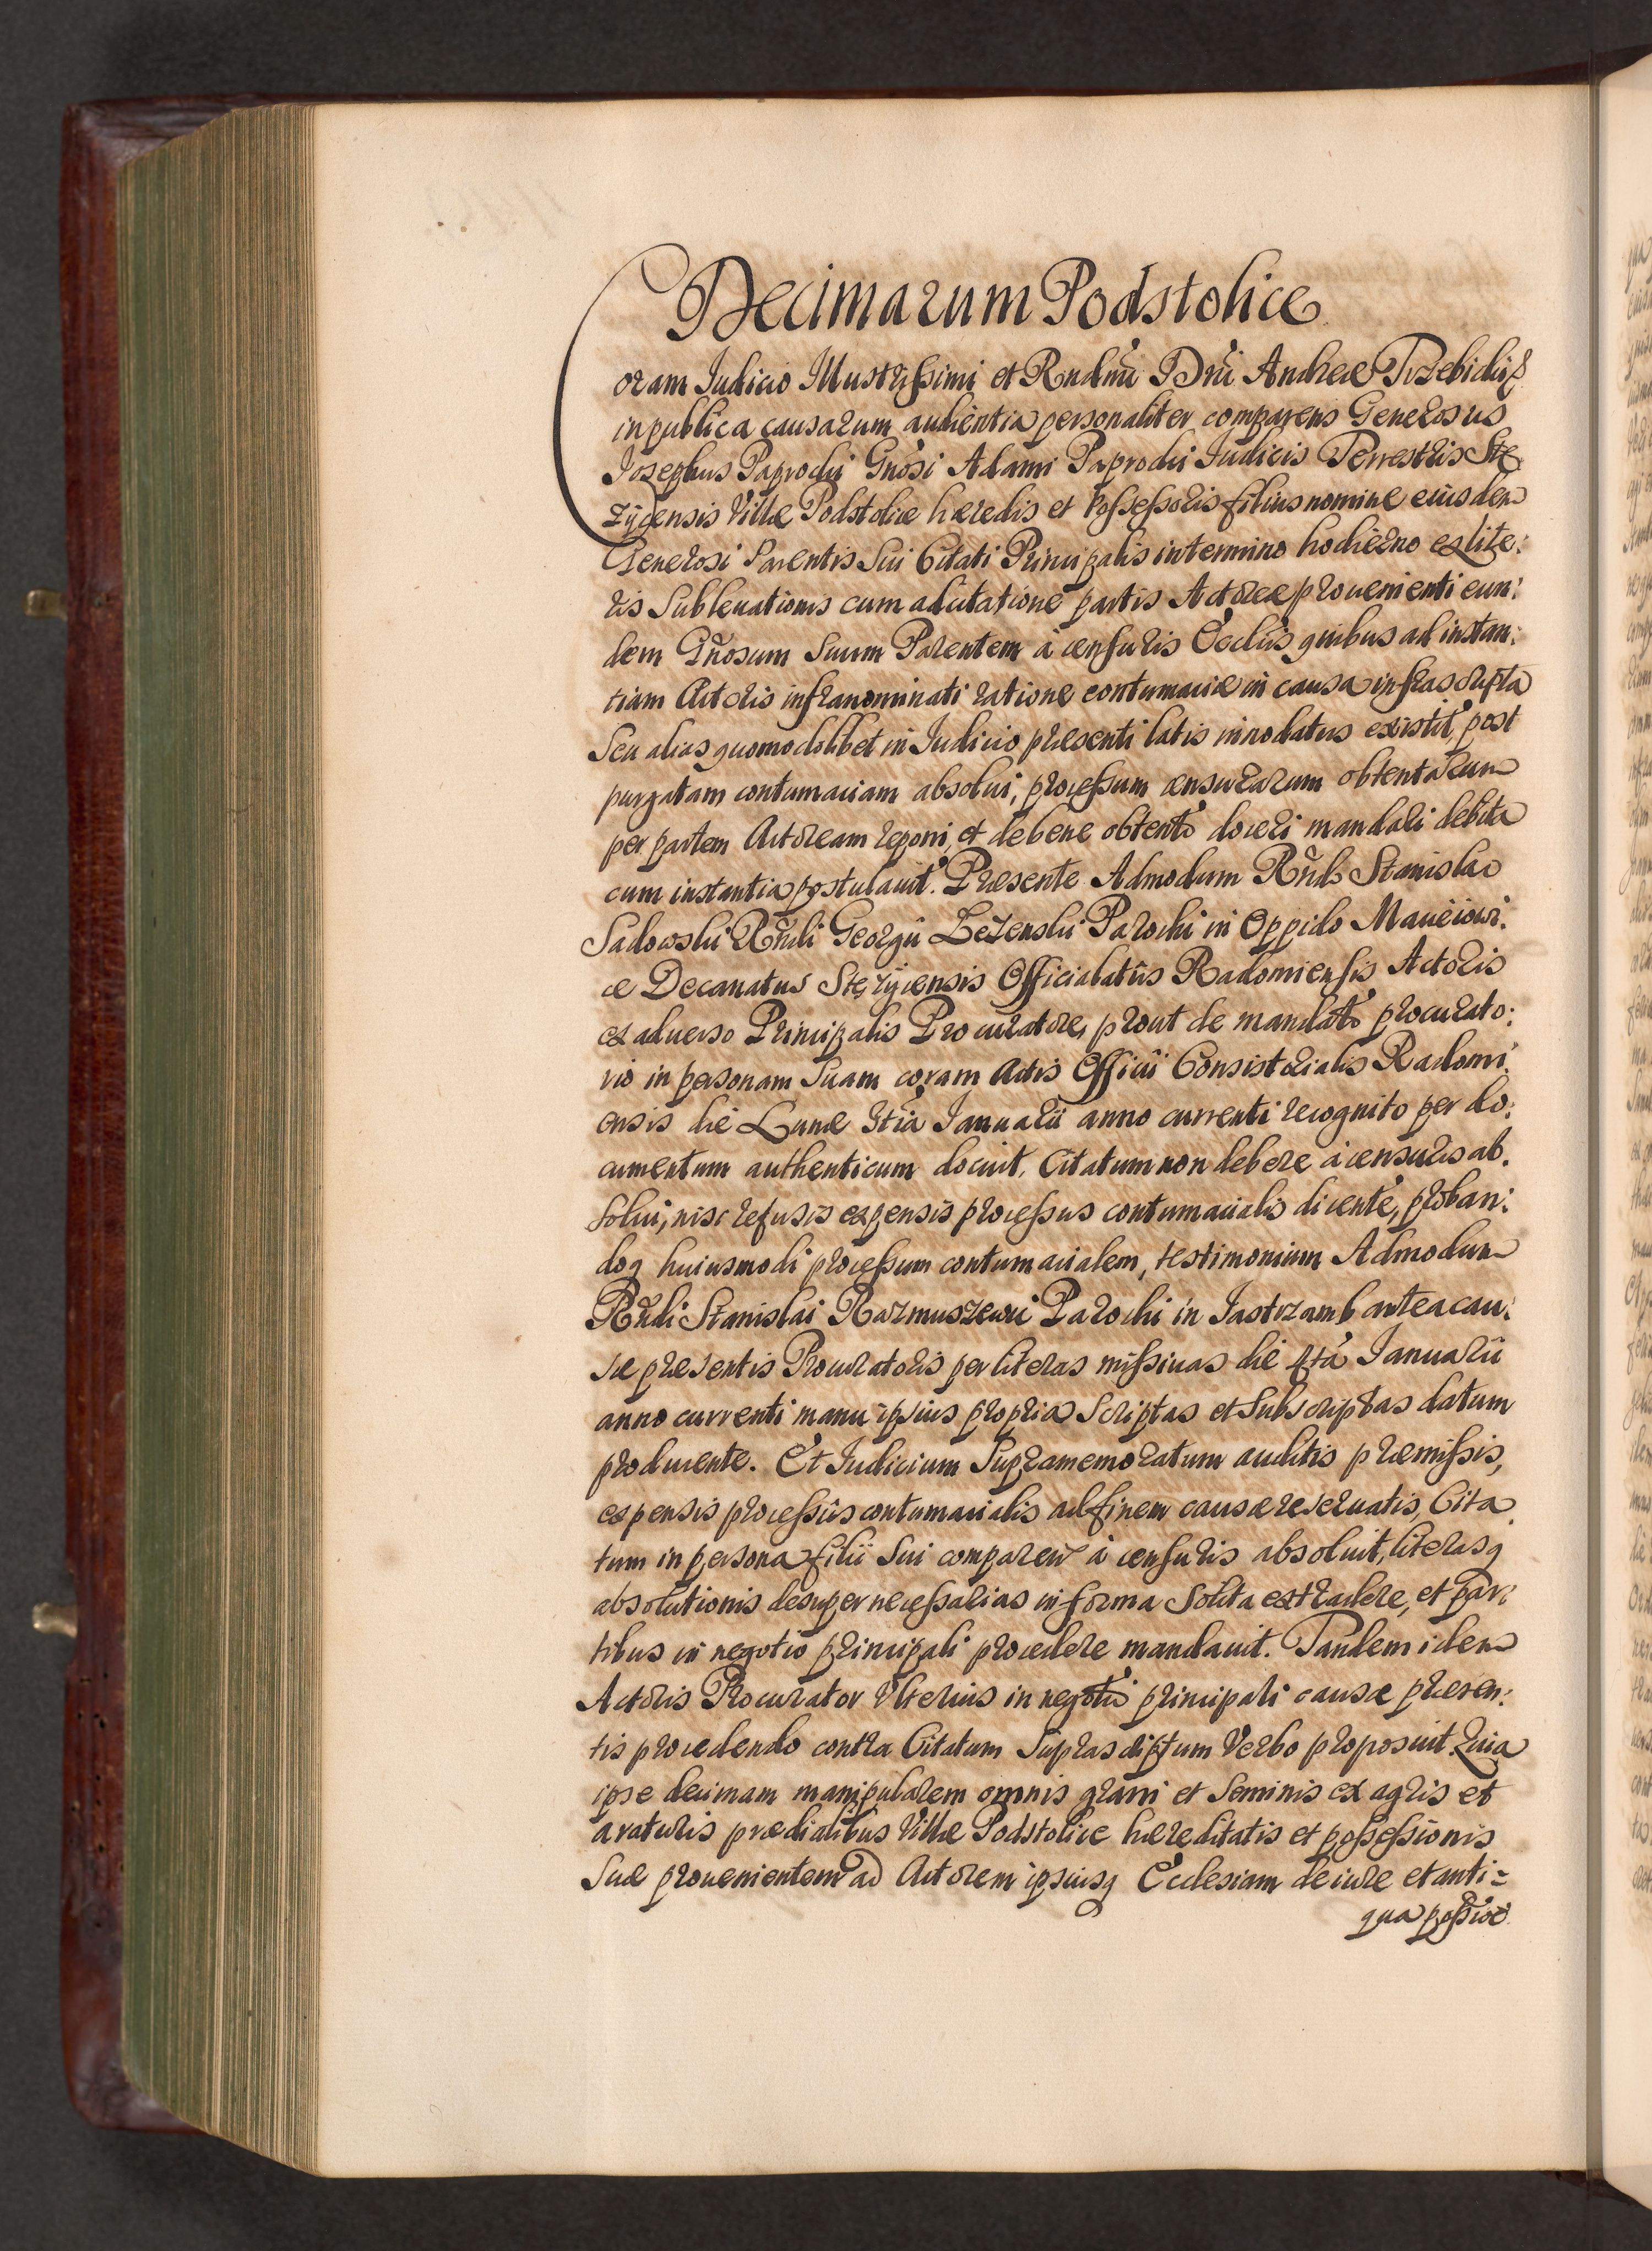 Decimarum Podstolice
Coram Iudicio Illustrissimi et Rndmi Dni Andreæ Trzebicki &
in publica causarum audientia personaliter comparens Generosus
Josephus Paprocki Gnosi Adami Paprocki Iudicis Terrestris Stę
zycensis Villæ Podstolice hæredis et Possessoris filius nomine eiusdem
Generosi Parentis Sui Citati Principalis in termino hodierno ex lite:
ris Subleuationis cum adcitatione partis Actoreæ prouenienti eun:
dem Gnosum Suum Parentem à censuris Ecclis quibus ad instan:
tiam Actoris infranominati ratione contumaciæ in causa infrascripta
Seu alias quomodolibet in Iudicio præsenti latis innodatus existit, post
purgatam contumaciam absolui, processum censurarum obtentarum
per partem Actoream reponi, et de bene obtento doceri mandari debita
cum instantia postulauit. Præsente Admodum Rndo Stanislao
Sadowski Rndi Georgii Lezenski Parochi in Oppido Macieiowi:
ce Decanatus Stęzycensis Officialatûs Radomiensis Actoris
ex aduerso Principalis Procuratore, prout de mandato procurato:
rio in personam Suam coram Actis Officii Consistorialis Radomi:
ensis die Lunæ 3tia Ianuarii anno currenti recognito per do:
cumentum authenticum docuit, Citatum non debere à censuris ab:
solui, nisi refusis expensis processus contumacialis dicente, proban:
doq huiusmodi processum contumacialem, testimonium Admodum
Rndi Stanislai Razmuszewic Parochi in Jastrzamb antea cau:
sæ præsentis Procuratoris per literas missiuas die 4ta Ianuarii
anno currenti manu ipsius propria Scriptas et Subscriptas datum
producente. Et Iudicium Supramemoratum auditis præmissis,
expensis processûs contumacialis ad finem causæ reseruatis, Cita
tum in persona filii Sui comparen à censuris absoluit, literasq
absolutionis desuper necessarias in forma Solita extradere, et par:
tibus in negotio principali procedere mandauit. Tandem idem
Actoris Procurator Vlterius in negotio principali causæ præsen:
tis procedendo contra Citatum Suprascriptum Verbo proposuit. Quia
ipse decimam manipularem omnis grani et Seminis ex agris et
araturis prædialibus Villæ Podstolice hæreditatis et possessionis
Suæ prouenientem ad Actorem ipsiusq Ecclesiam de iure et anti=
qua possioe